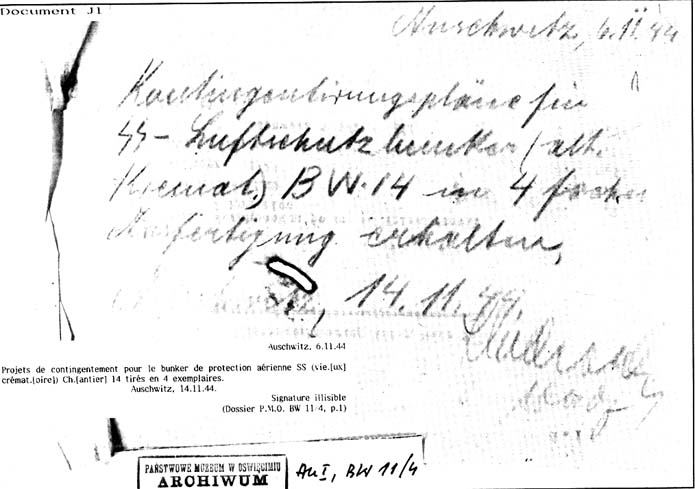 Document J1
Auschwitz, 6.11.44
Kontingentirungspläne für
SS - Luftschutzbunker (alt.
Kremat.) BW.14 in 4 facher
Ausfertigung erhalten,
14.11.44.
Auschwitz, 6.11.44
Projets de contingentement pour le bunker de protection aérienne SS (vie.[ux]
crémat.[oire]) Ch.[antier] 14 tirés en 4 exemplaires.
Auschwitz, 14.11.44.
Signature illisible
(Dossier P.M.O. BW 11-4, p.1)
PAŃSTWOWE MUZEUM W OŚWIĘCIMIU
ARCHIWUM
Au I, BW 11/4